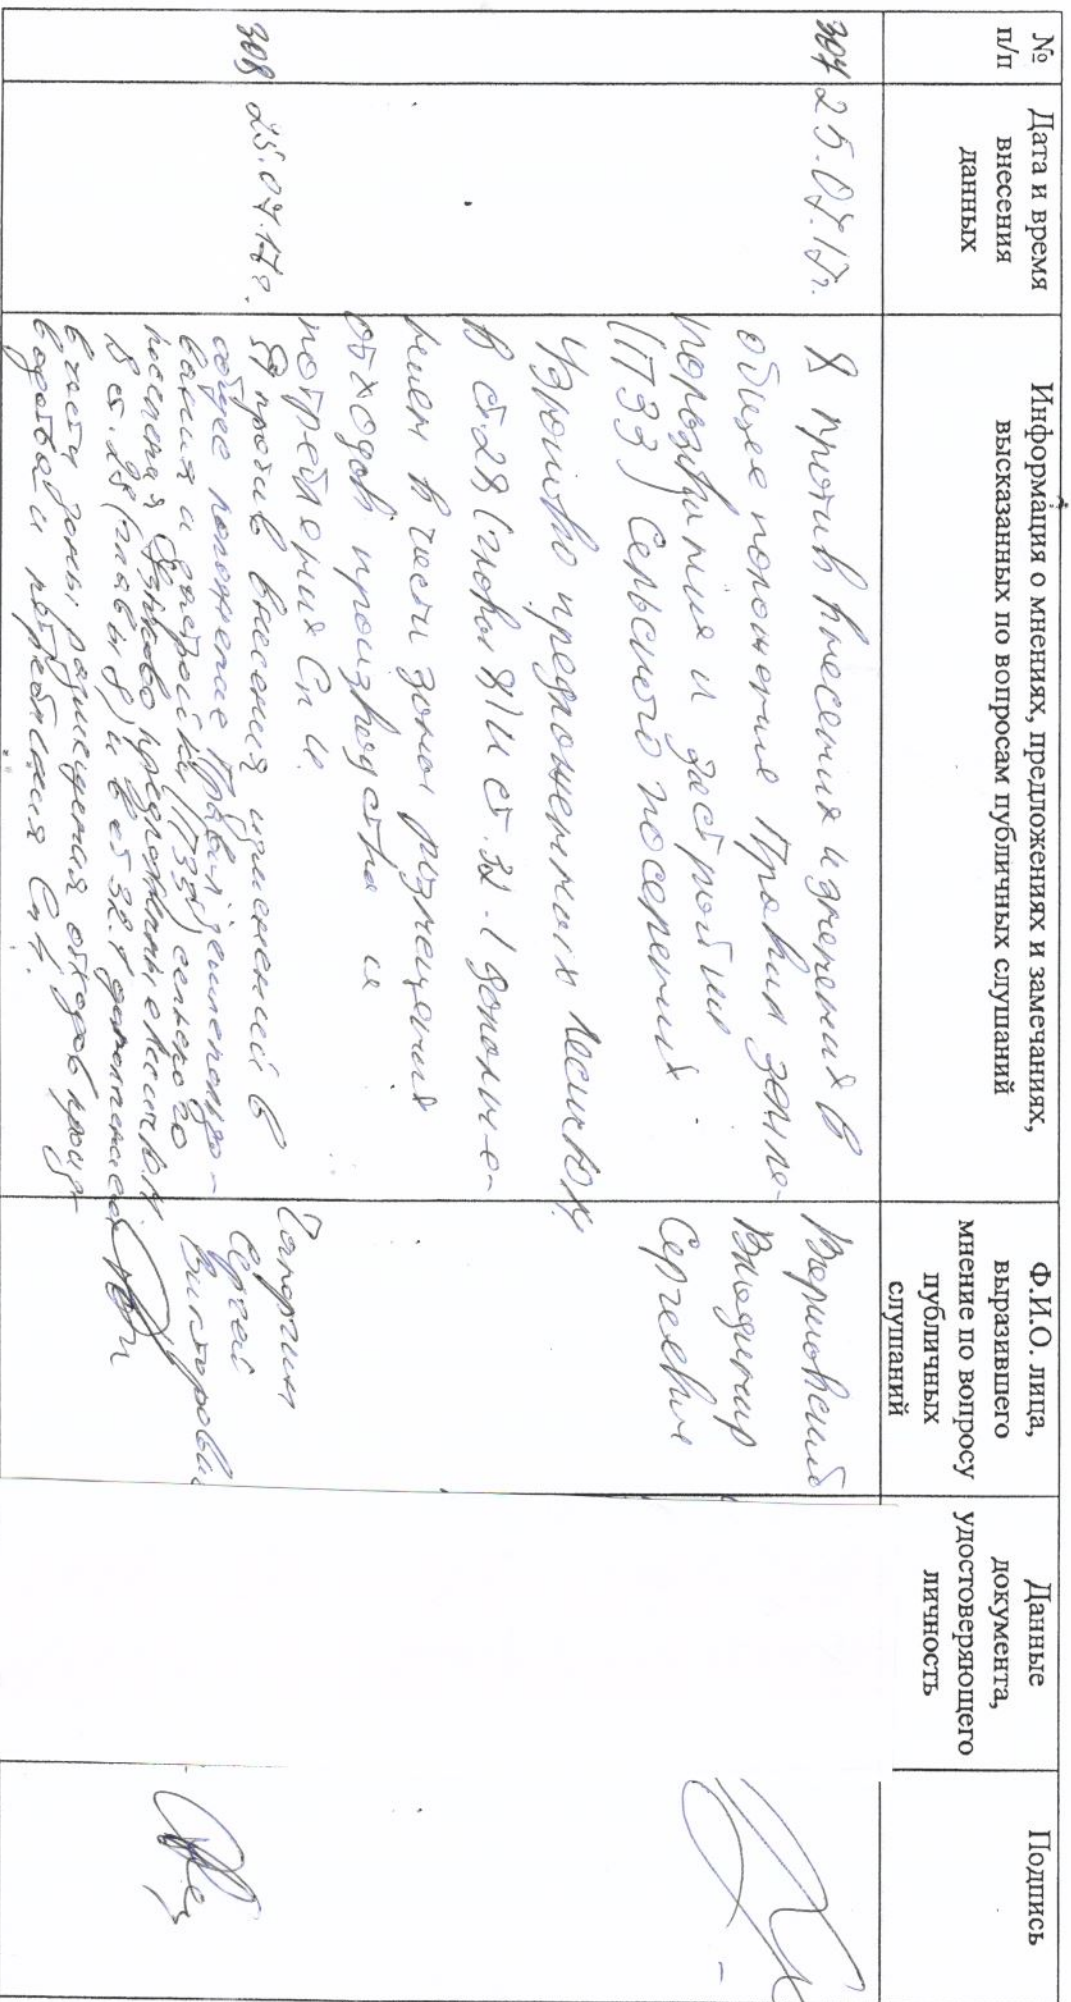 №
п/п
Дата и время
внесения
данных
Информация о мнениях, предложениях и замечаниях,
высказанных по вопросам публичных слушаний
Ф.И.О. лица,
выразившего
мнение по вопросу
публичных
слушаний
Данные
документа,
удостоверяющего
личность
Подпись
307
25.07.17г.
Я против внесения изменения в
общее положение Правил земле-
пользования и застройки
(ПЗЗ) Сельского поселения
предложенных
В ст.28 (главы 8) и ст. 32.1 дополне-
нием в части зоны размещения
отходов производства и
потребления Сп 4.
Владимир
Сергеевич
308
25.07.17г.
Я против внесения изменений в
общее положение Правил землепользо-
вания и застройки (ПЗЗ) сельского
поселения
в ст. 28 (главы 8) и в ст 32.1
в части зоны размещения отходов произ-
водства и потребления Сп 4.
Сергей
Викторович